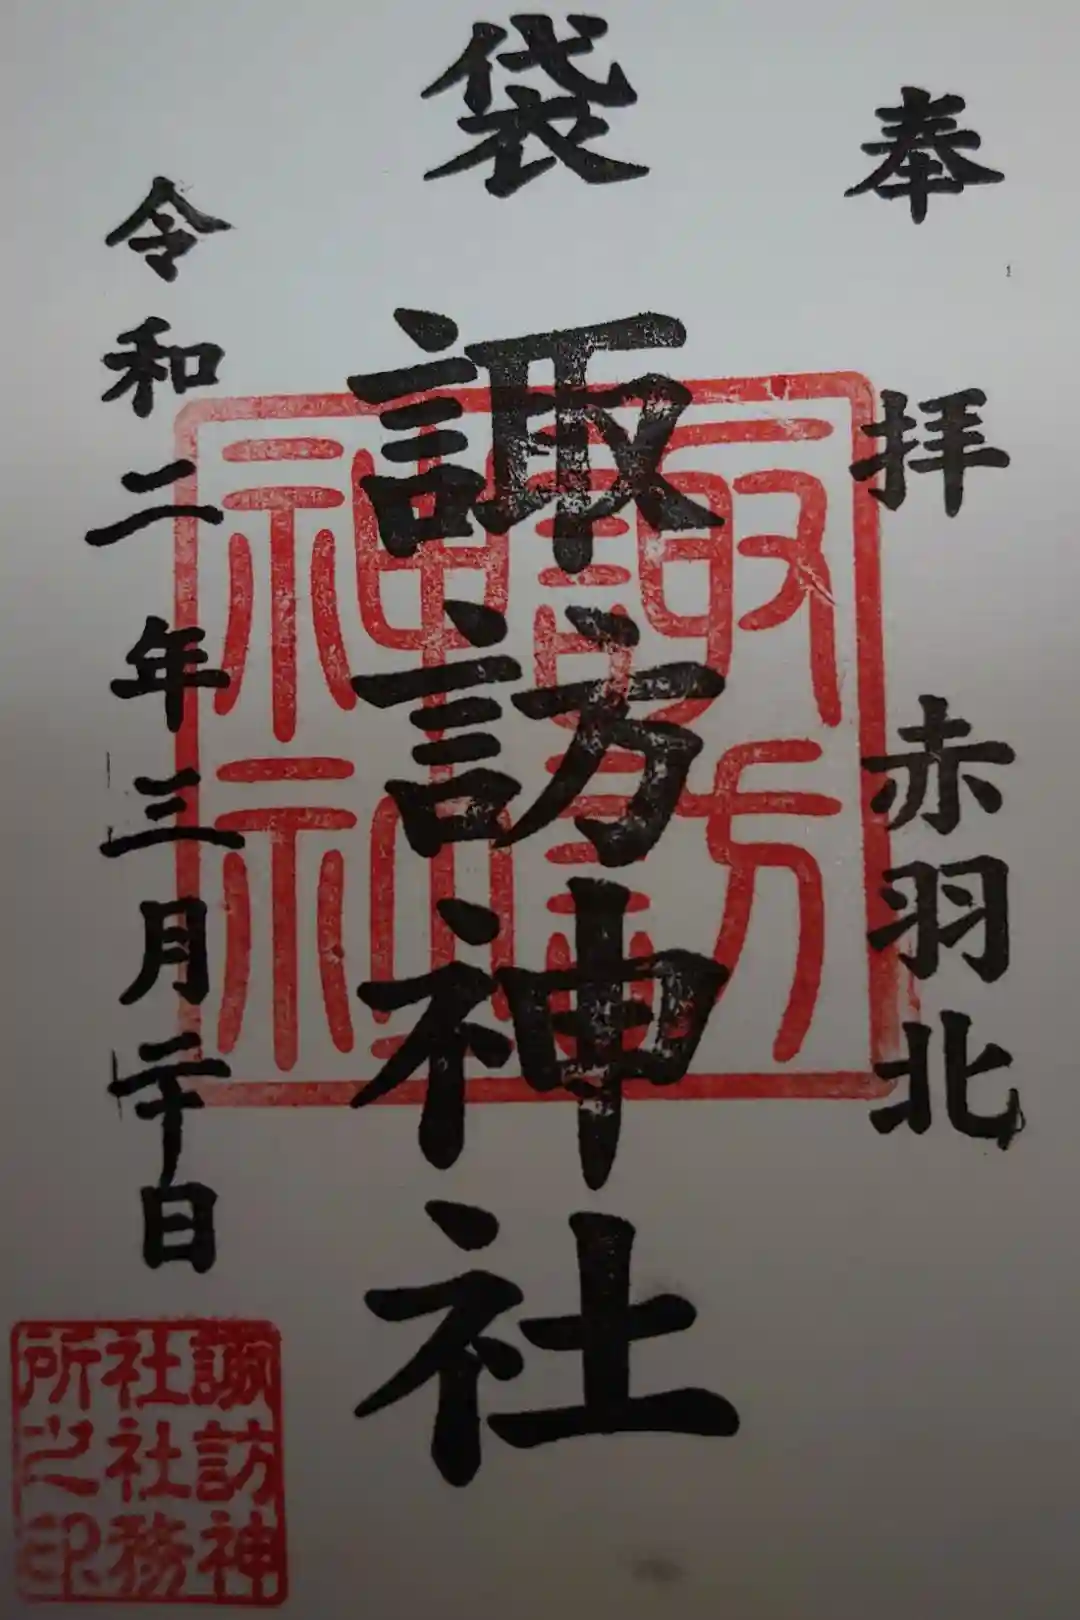 奉拝 赤羽北
袋 諏訪神社
令和二年三月二十日
諏訪
神
諏訪神
社社務
所之印